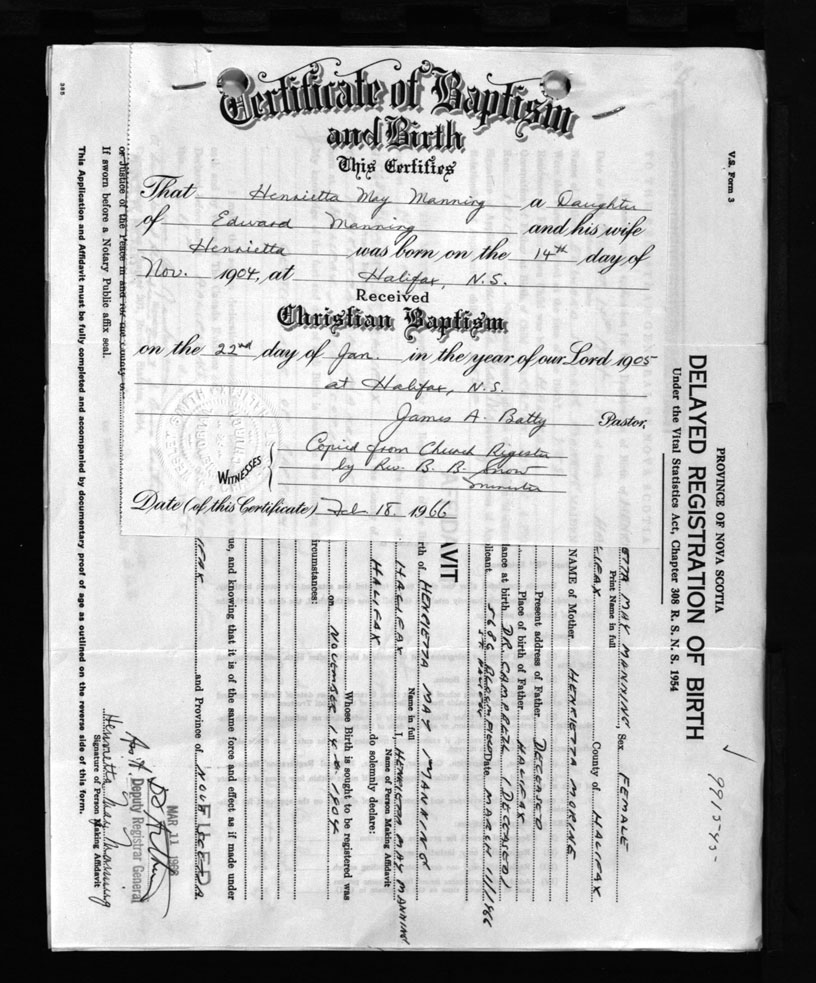 Certificate of Baptism
and Birth
This Certifies
That Henrietta May Manning a Daughter
of Edward Manning and his wife
Henrietta was born on the 14th day of
Nov. 1904, at Halifax, N.S.
Received
Christian Baptism
on the 22nd day of Jan. in the year of our Lord 1905
at Halifax, N.S.
James A. Batty Pastor,
WITNESSES
Copied from Church Register
by Rev. B. B. Snow
minister
Date (of this Certificate) Feb 18, 1966
V.S. Form 3
PROVINCE OF NOVA SCOTIA
DELAYED REGISTRATION OF BIRTH
Under the Vital Statistics Act, Chapter 308 R. S. N. S. 1954
9915-45-
ETTA MAY MANNING, Sex FEMALE
Print Name in full
LIFAX County of HALIFAX
NAME of Mother HENRIETTA MORINE
Present address of Father DECEASED
Place of birth of Father HALIFAX
dance at birth DR. CAMPBELL (DECEASED)
plicant 5686 Date MARCH 11/1966
AVIT
rth of HENRIETTA MAY MANNING
Name in full
HALIFAX I, HENRIETTA MAY MANNING
Name of Person Making Affidavit
HALIFAX do solemnly declare:
Whose Birth is sought to be registered was
on NOVEMBER 14th 1904
ircumstances:
ue, and knowing that it is of the same force and effect as if made under
IFAX and Province of NOVA SCOTIA
MAR 11 1966
Deputy Registrar General
Henrietta May Manning
Signature of Person Making Affidavit
or Justice of the Peace in and for the County
If sworn before a Notary Public affix seal.
This Application and Affidavit must be fully completed and accompanied by documentary proof of age as outlined on the reverse side of this form.